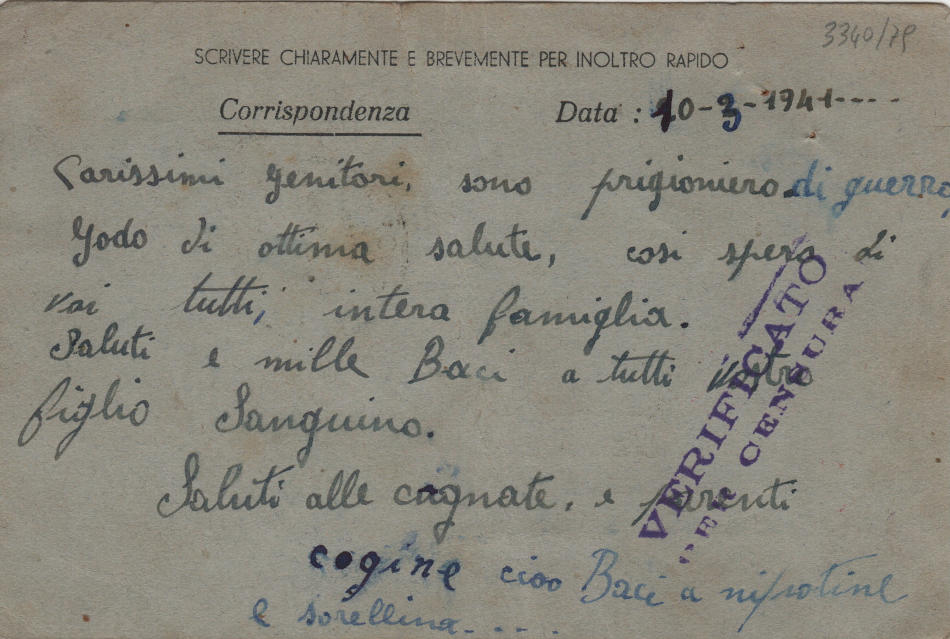 3340/79
SCRIVERE CHIARAMENTE E BREVEMENTE PER INOLTRO RAPIDO
Corrispondenza Data : 10-3-1941----
Carissimi genitori, sono prigioniero di guerra,
Godo di ottima salute, così spero di
voi tutti, intera famiglia.
Saluti e mille Baci a tutti vostro
figlio Sanguino.
Saluti alle cognate, e parenti
cogine ciao Baci a nipotine
e sorellina....
VERIFICATO
PER CENSURA